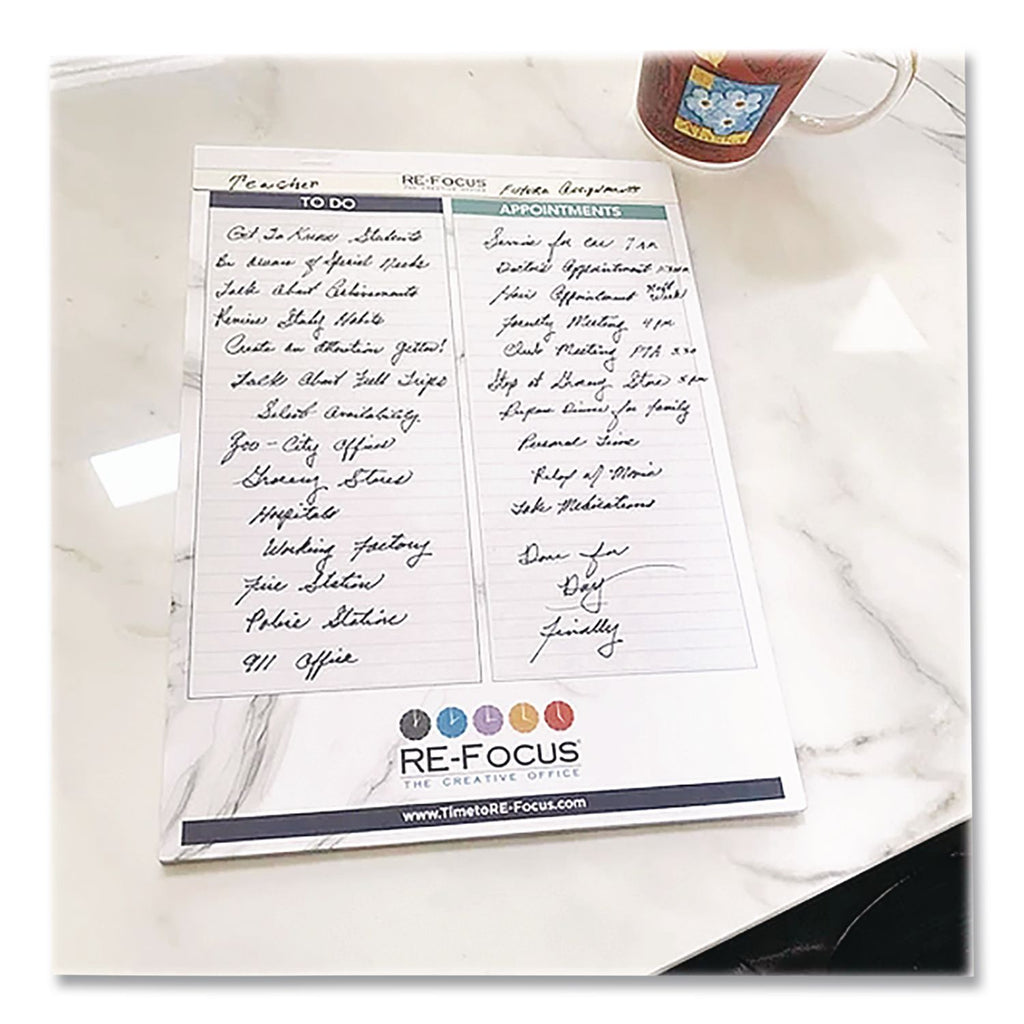 Teacher
RE-FOCUS
THE CREATIVE OFFICE
Future Assignments
TO DO
Get To Know Students
Be Aware of Special Needs
Talk About Achievements
Review Study Habits
Create an attention getter!
Talk About Field Trips
Select Availability
Zoo - City Office
Grocery Stores
Hospitals
Working Factory
Fire Station
Police Station
911 Office
APPOINTMENTS
Service for car 7 am
Doctor's Appointment
Hair Appointment Next Week
Faculty Meeting 4 pm
Club Meeting PTA 5:30
Stop at Grocery Store 5 pm
Prepare Dinner for family
Personal Time
Relax w/ Movie
Take Medications
Done for
Day
Finally
RE-FOCUS
THE CREATIVE OFFICE
www.TimetoRE-Focus.com